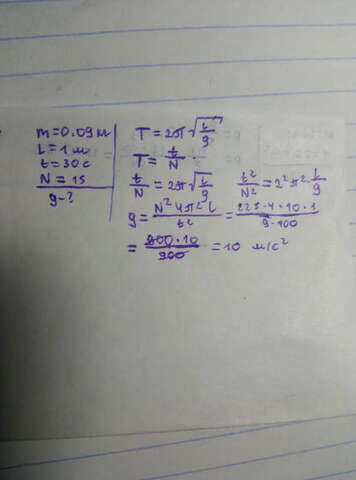 m=0.09кг
L=1м
t=30с
N=15
g-?
T=2π√(L/g)
T=t/N
t/N=2π√(L/g)   t²/N²=2²π² L/g
g=N²4π²L/t²=225·4·10·1/9·100
=900·10/900=10 м/с²